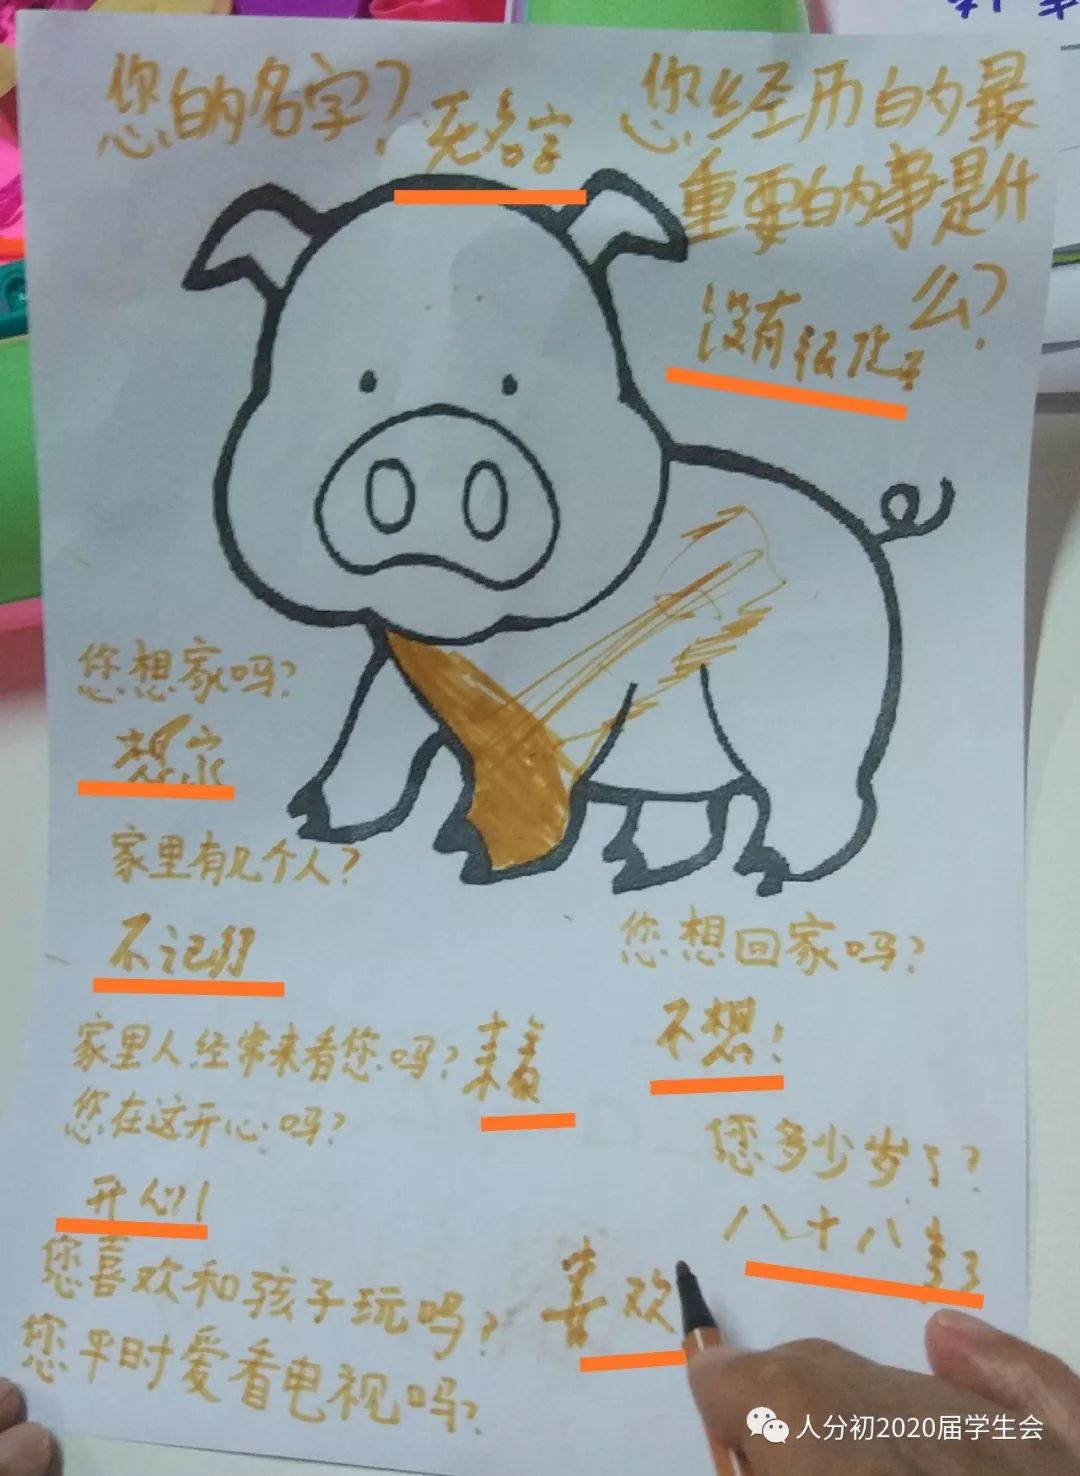 您的名字？
无名字
您经历的最
重要的事是什
么？
没有
您想家吗？
想家
家里有几个人？
不记得
您想回家吗？
不想！
家里人经常来看您吗？
您在这开心吗？
开心！
您多少岁了？
八十八岁了
您喜欢和孩子玩吗？
喜欢
您平时爱看电视吗？
人分初2020届学生会